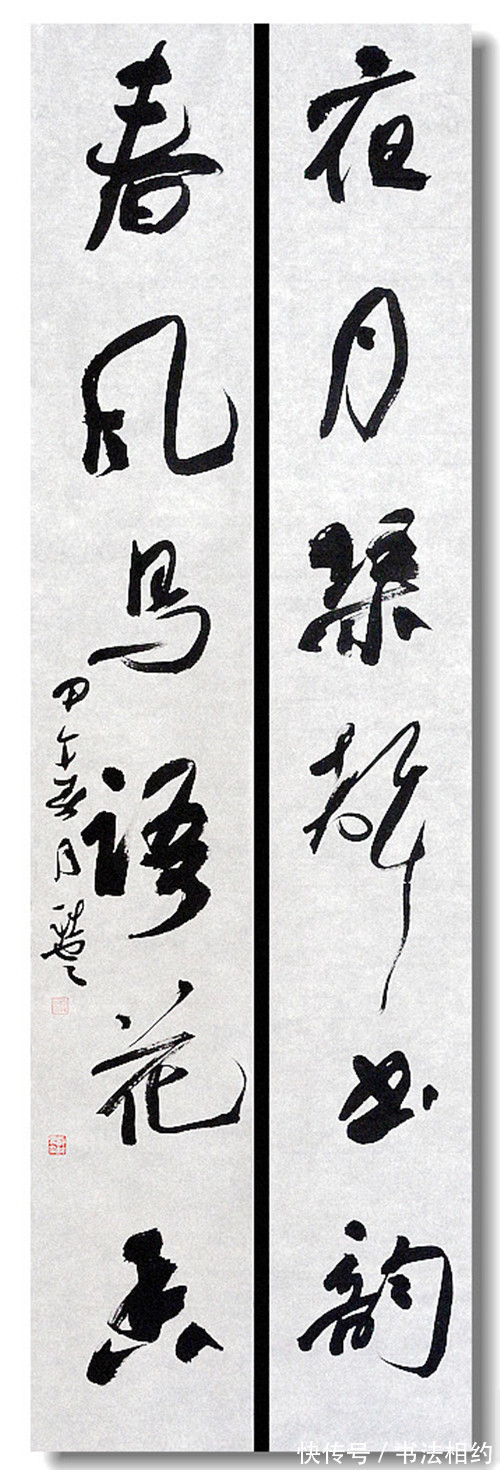 夜月琴聲书韵
春风鸟语花香
甲午春月
快传号 / 书法相约